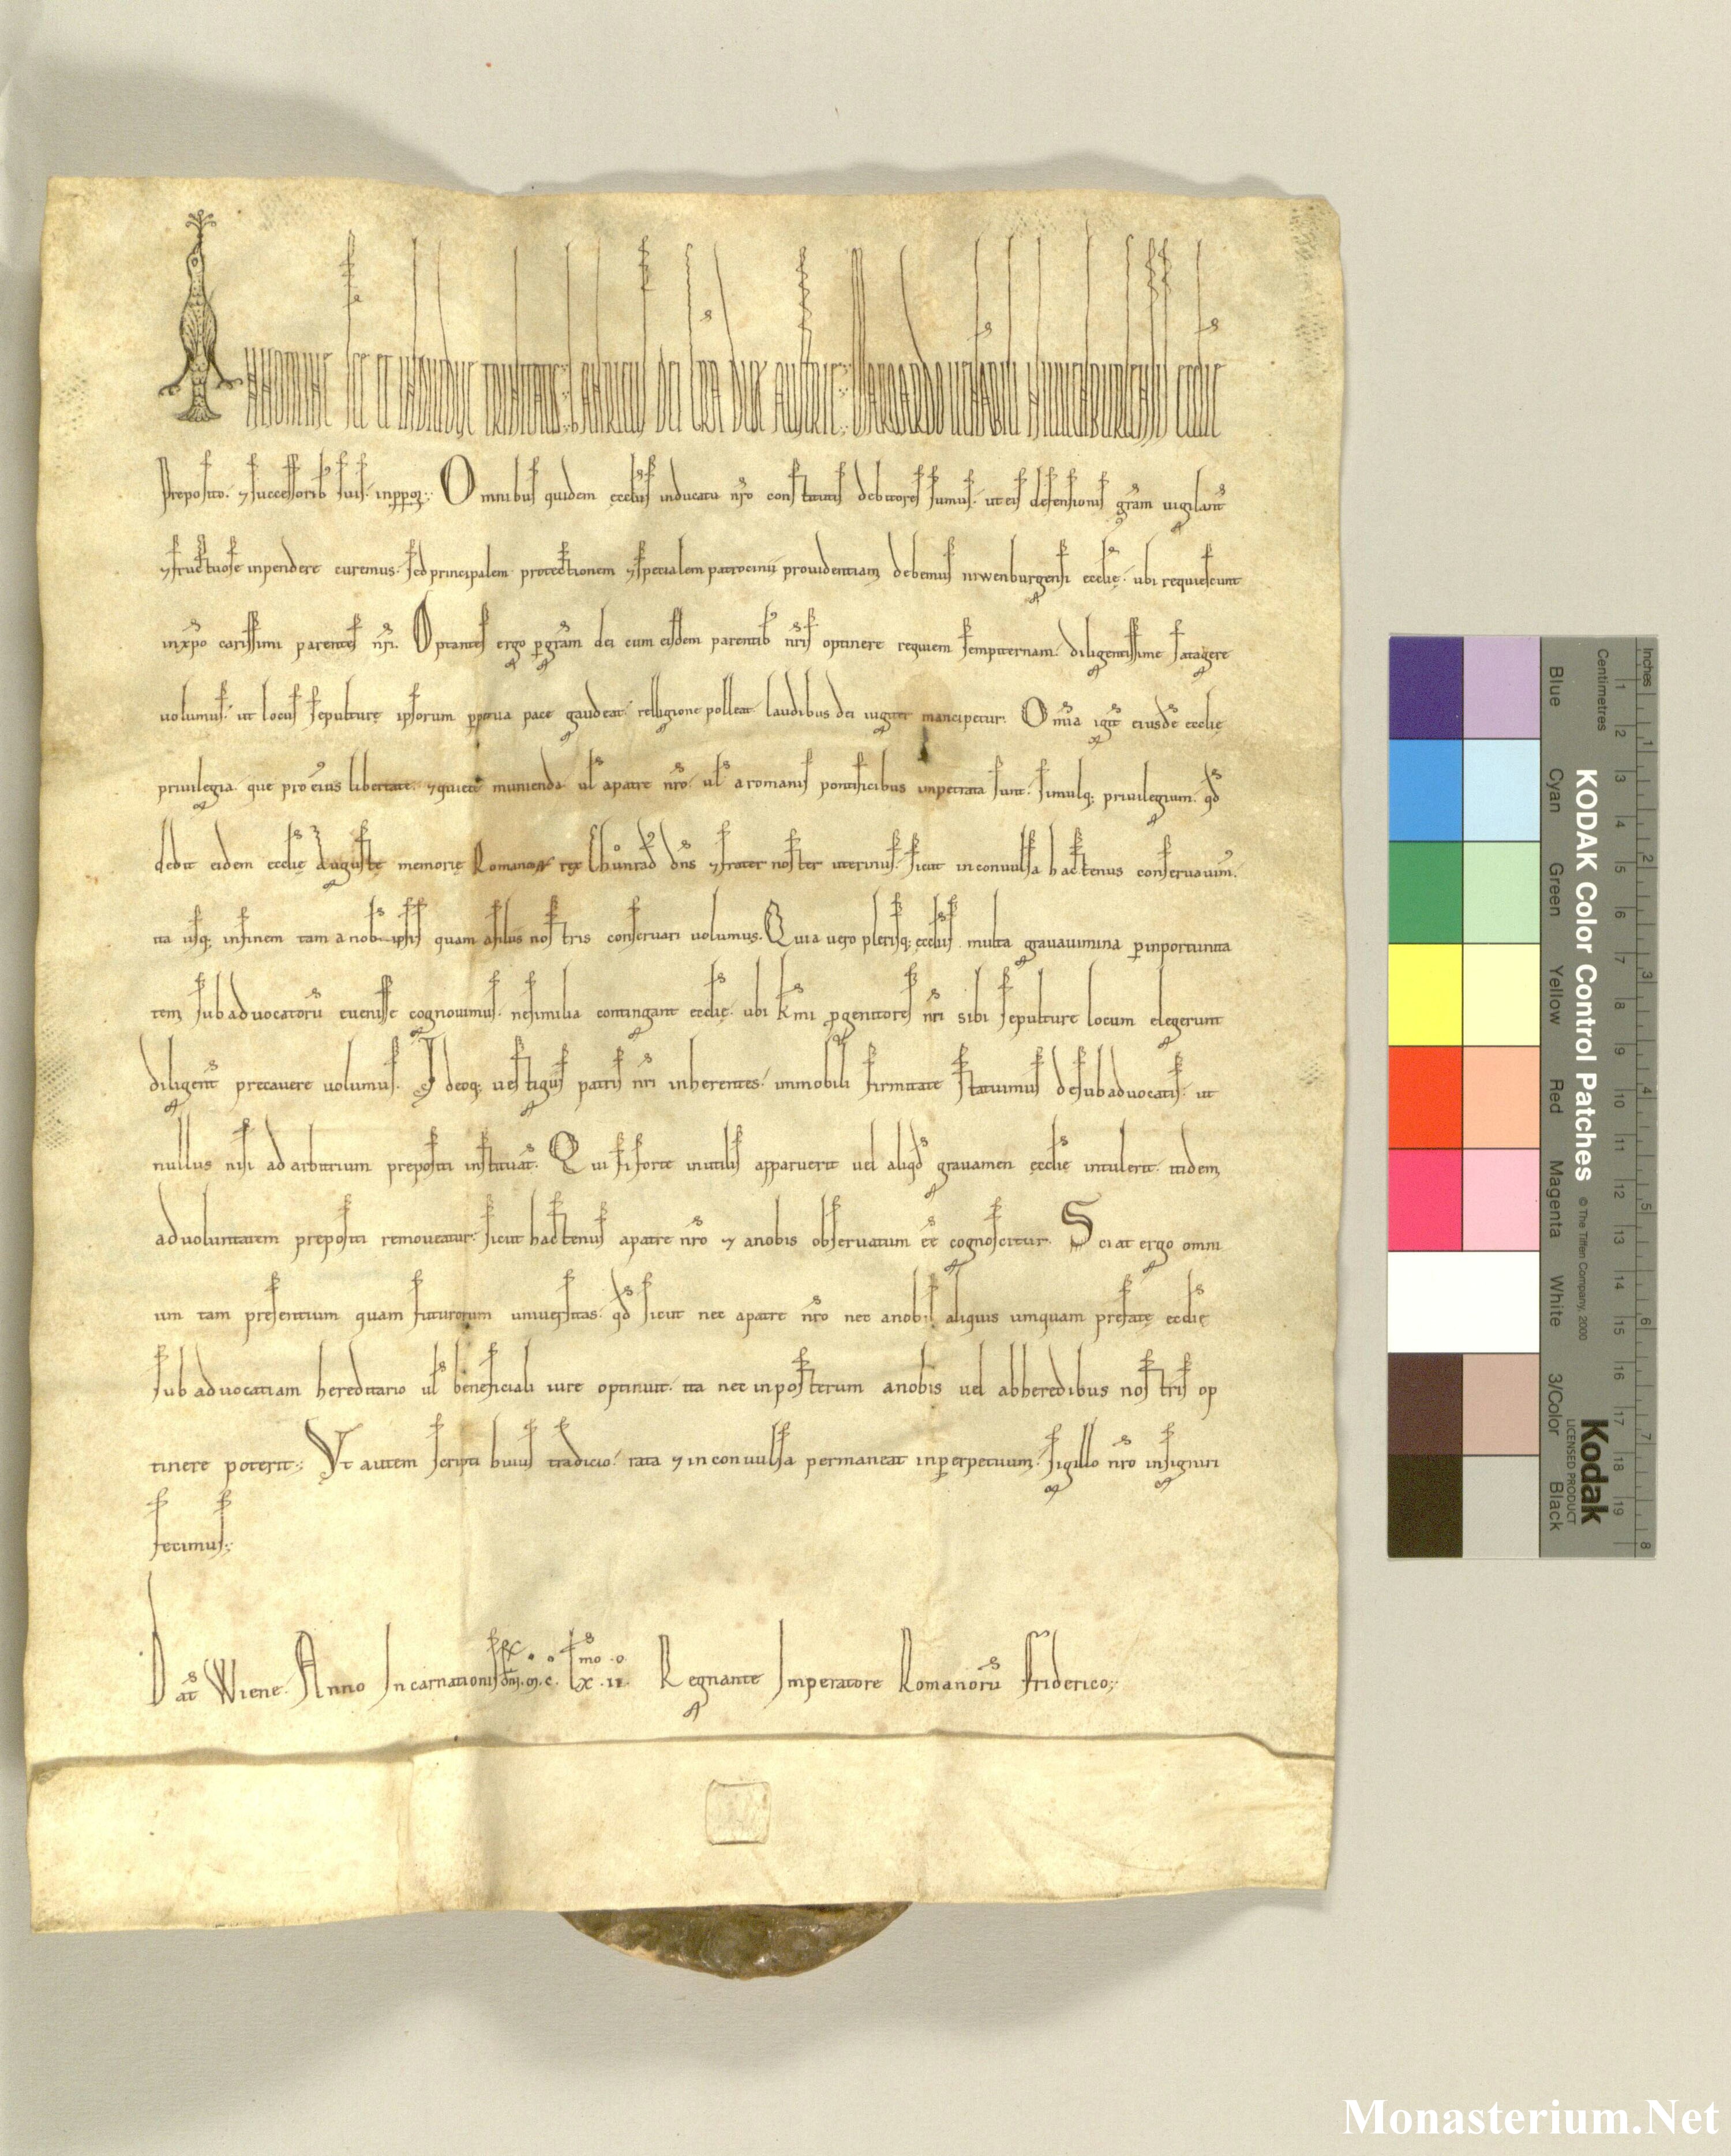 IN NOMINE SCE ET INDIVIDUE TRINITATIS. HEINRICUS DEI GRA DUX AUSTRIE. MARQUARDO VENERABILI NIUUENBURGENSIS ECCLIE
Preposito. & successorib suis. inppm. Omnibus quidem ęcclijs inducatu nro constitutis debitores sumus. ut eis defensionis gram uigilant
& fructuose inpendere curemus. sed principalem protectionem & specialem patrocinii prouidentiam debemus niwenburgensi ecclię. ubi requiescunt
inxpo carissimi parentes nri. Optantes ergo p gram dei cum eisdem parentib nris optinere requiem sempiternam. diligentissime satagere
uolumus. ut locus sepulturę ipsorum ppetua pace gaudeat. relligione polleat. laudibus dei iugiter mancipetur. Omia igit eiusde ecclię
priuilegia. que pro eius libertate. & quiete munienda ul apatre nro. ul a romanis pontificibus inpetrata sunt. simulq; priuilegium. qd
dedit eidem ecclię Augustę memorię Romanorum rex Chunrad dns & frater noster uterinus. sicut inconuulsa hactenus conseruauim.
ita usq; infinem tam a nob ipsis quam afiliis nostris conseruari uolumus. Quia uero plerisq; ecclijs multa grauauimina p inportunita
tem subaduocatoru euenisse cognouimus. nesimilia contingant ecclię. ubi kmi pgenitores nri sibi sepulture locum elegerunt
diligent precauere uolumus. Ideoq; uestigiis patris nri inherentes. immobili firmitate statuimus desubaduocatis. ut
nullus nisi ad arbitrium prepositi instituat. Qui si forte inutilis apparuerit uel aliqd grauamen ęcclię intulerit. itidem
aduoluntatem prepositi remoueatur. sicut hactenus apatre nro & anobis obseruatum ee cognoscitur. Sciat ergo omni
um tam presentium quam futurorum uniuersitas. qd sicut nec apatre nro nec anobis aliquis umquam prefatę ecclię
sub aduocatiam hereditario ul beneficiali iure optinuit. ita nec inposterum anobis uel abheredibus nostris op
tinere poterit. Vt autem scripti huius tradicio. rata & inconuulsa permaneat inperpetuum. sigillo nro insigniri
fecimus.
Dat Wiene. Anno Incarnationis dni. m. c. lx. ii. Regnante Imperatore Romanoru Friderico.
KODAK Color Control Patches © The Tiffen Company, 2000
Kodak
LICENSED PRODUCT
Blue Cyan Green Yellow Red Magenta White 3/Color Black
Inches 1 2 3 4 5 6 7 8
Centimetres 1 2 3 4 5 6 7 8 9 10 11 12 13 14 15 16 17 18 19
Monasterium.Net